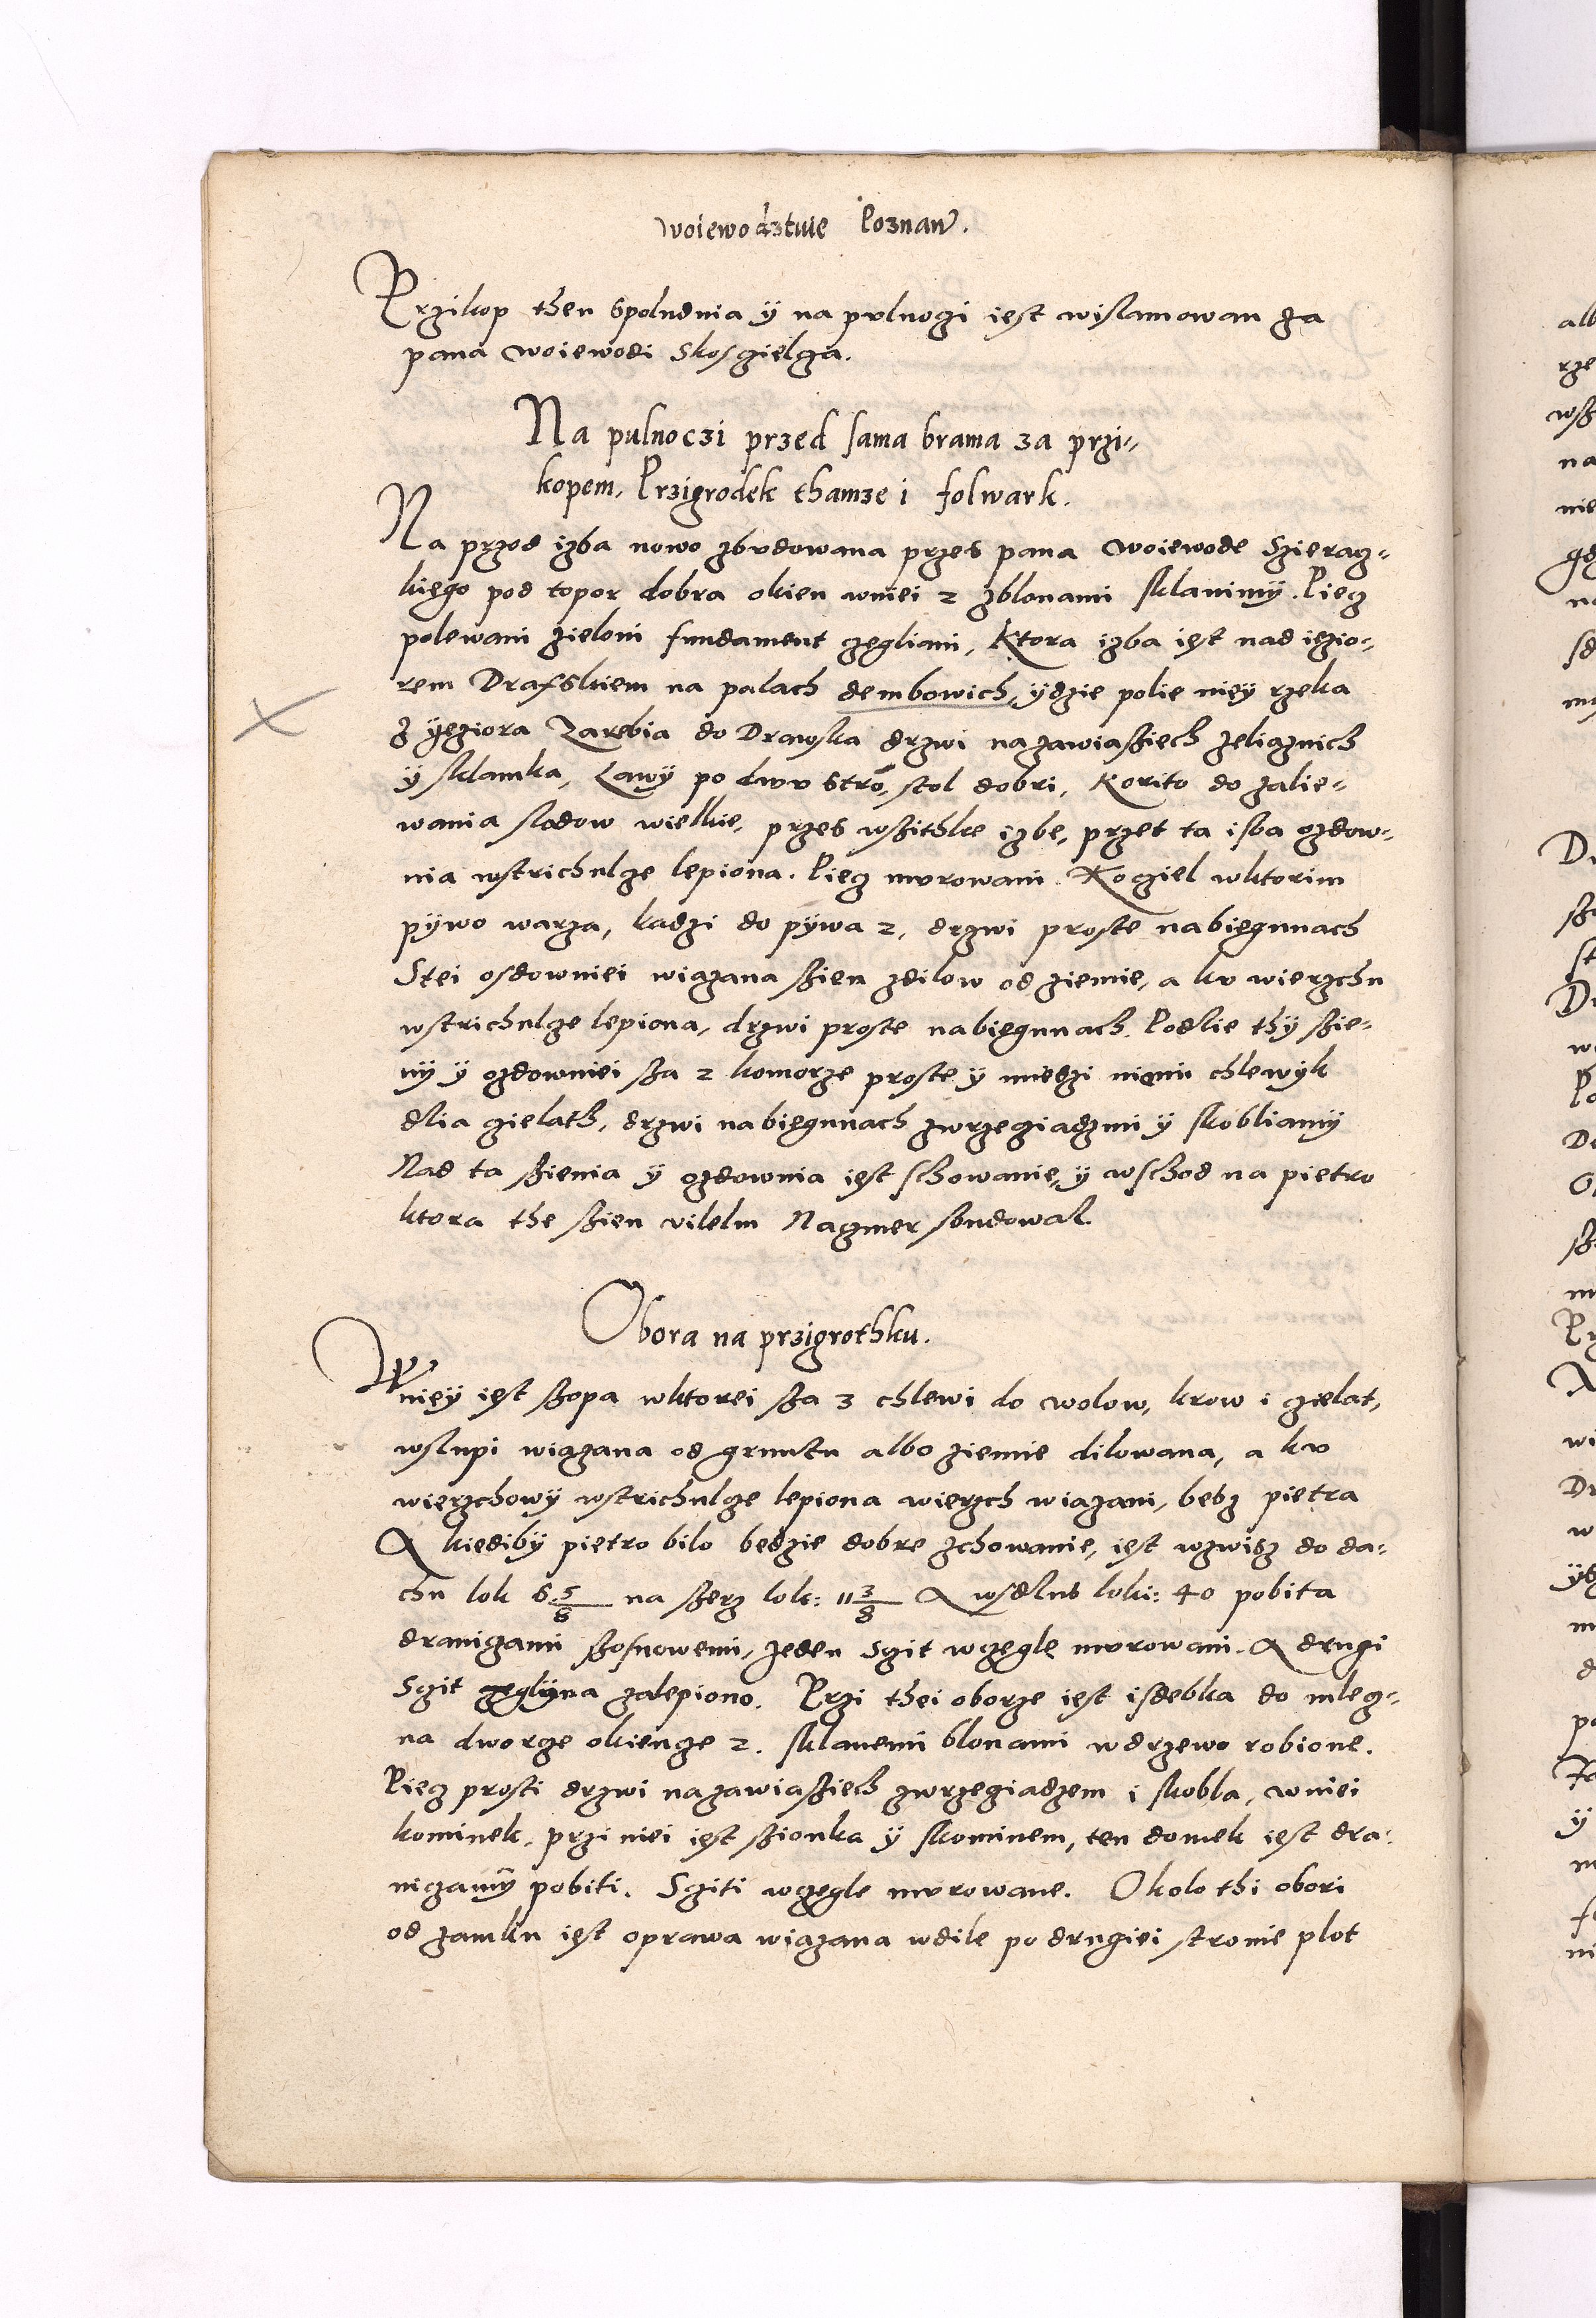 woiewodztwie Poznan.
Przikop then spoludnia ÿ na pvlnoczi iest wislamowan za
pana woiewodi Skosczielcza.
Na pulnoczi przed sama brama za przi-
kopem, Przigrodek thamze i folwark.
Na przod izba nowo zbvdowana przes pana woiewode Szieracz-
kiego pod topor dobra okien wniei 2 zblonami sklanimÿ. Piecz
polewani zieloni fundament czegliani, Ktora izba iest nad iezio-
rem Drafskiem na palach dembowich, ÿdzie polie nieÿ rzeka
z ÿeziora Zarebia do Drawska drzwi na zawiaßiech zeliaznich
ÿ sklamka, Lawÿ po dwv stro, stol dobri, Korito do zalie-
wania slodow wielkie, przes wßithke izbe, przet ta isba ozdow-
nia wstrichulcze lepiona. Piecz mvrowani. Kocziel wktorim
pÿwo warza, kadzi do pÿwa 2, drzwi proste nabiegunach
Stei osdowniei wiązana ßien zdilow od ziemie, a kv wierzchu
wstrichulcze lepiona, drzwi proste nabiegunach. Podlie thÿ ßie-
nÿ ÿ ozdowniei ßa 2 komorze proste ÿ miedzi nimi chlewÿk
dlia czielath, drzwi nabiegunach zwrzecziadzmi ÿ skobliamÿ
Nad ta ßienia ÿ ozdownia iest schowanie, ÿ wschod na pietro
ktora the ßien vilelm Naczmer sbudowal.
Obora na przigrothku.
Wnieÿ iest ßopa wktorei ßa 3 chlewi do wolow, krow i czielat,
wslupi wiązana od gruntu albo ziemie dilowana, a kv
wierzchowÿ wstrichulcze lepiona wierzch wiązani, bebz pietra
A kiedibÿ pietro bilo bedzie dobre zchowanie, iest wzwisz do da-
chu lok 6 5/8 na ßerz lok: 11 3/8 A wsdlus loki: 40 pobita
draniczami ßosnowemi, Jeden Sczit wczegle mvrowani. A drugi
Sczit glÿna zalepiono. Przi thei oborze iest isdebka do mlecz-
na dworze okiencze 2. sklanemi blonami wdrzewo robione.
Piecz prosti drzwi nazawiaßiech zwrzecziadzem i skobla, wniei
kominek, przi niei iest ßionka ÿ skominem, ten domek iest dra-
niczamÿ pobiti. Scziti wczegle mvrowane. Okolo thi obori
od zamku iest oprawa wiązana wdile po drugiei stronie plot